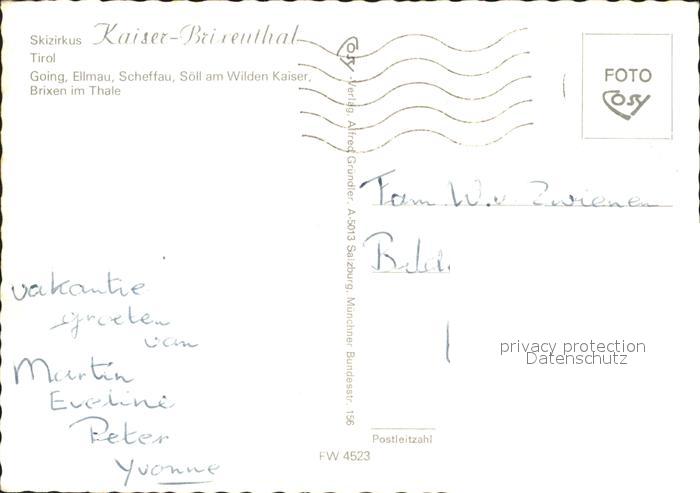 Skizirkus Kaiser-Brixenthal
Tirol
Going, Ellmau, Scheffau, Söll am Wilden Kaiser,
Brixen im Thale
Cosy
Verlag, Alfred Gründler, A-5013 Salzburg, Münchner Bundesstr. 156
FOTO
Cosy
Fam. W. v. Zwienen
vakantie
groeten
van
Martin
Eveline
Peter
Yvonne
privacy protection
Datenschutz
Postleitzahl
FW 4523